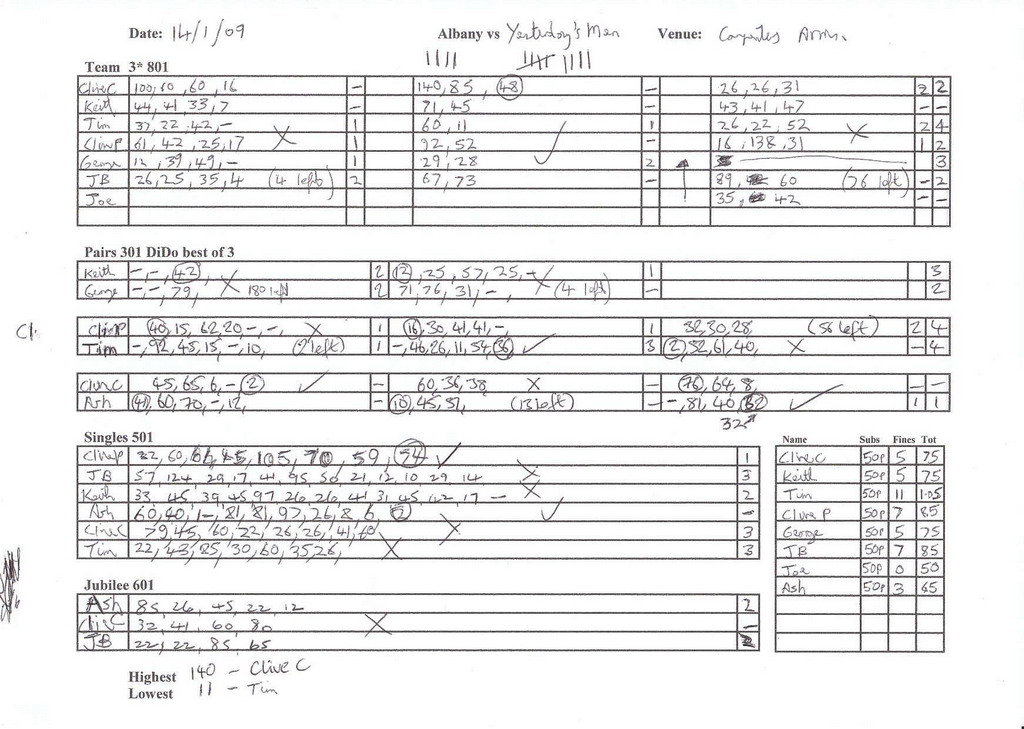 Date: 14/1/09 Albany vs Yesterday's Men Venue: Carpenters Arms.
Team 3* 801
Clive C 100, 60, 60, 16 - 140, 85, 48 - 26, 26, 31 2 2
Keith 44, 41 33, 7 - 71, 45 - 43, 41, 47 - -
Tim 37, 22, 42, - X 1 60, 11 1 26, 22, 52 X 2 4
Clive P 61, 42, 25, 17 1 92, 52 - 16, 138, 31 1 2
George 12, 39, 49, - 1 29, 28 2 3
JB 26, 25, 35, 4 (4 left) 2 67, 73 - 89, 60 (76 left) - 2
Joe 35, 42 - -
Pairs 301 DiDo best of 3
Keith -, -, 42, X 2 12, 25, 57, 25, - 1 3
George -, -, 79, 180 left 2 71, 76, 31, -, X (4 left) - 2
Cl.
Clive P 40, 15, 62, 20, -, -, X 1 16, 30, 41, 41, -, 1 32, 30, 28, (56 left) 2 4
Tim -, 92, 45, 15, -, 10, (2 left) 1 -, 46, 26, 11, 54, 36 3 2, 52, 61, 40, X - 4
Clive C 45, 65, 6, - 2 - 60, 36, 38 X - 76, 64, 8, - -
Ash 41, 60, 70, -, 12, - 10, 45, 31, (13 left) - -, 81, 40, 32 1 1
32
Singles 501
Clive P 32, 60, 66, 45, 105, 70, 59, 54 1
JB 57, 124, 29, 17, 41, 95, 50, 21, 12, 10, 29, 14 X 3
Keith 33, 45, 39, 45, 97, 26, 26, 41, 31, 45, 12, 17 - X 2
Ash 60, 40, 1, -, 81, 81, 97, 26, 8, 6, 2 -
Clive C 79, 45, 60, 22, 26, 26, 41, 60 X 3
Tim 22, 43, 85, 30, 60, 35, 26, X 3
Name Subs Fines Tot
Clive C 50p 5 75
Keith 50p 5 75
Tim 50p 11 1.05
Clive P 50p 7 85
George 50p 5 75
JB 50p 7 85
Joe 50p 0 50
Ash 50p 3 65
Jubilee 601
Ash 85, 26, 45, 22, 12 2
Clive C 32, 41, 60, 80 X -
JB 22, 22, 85, 65 2
Highest 140 - Clive C
Lowest 11 - Tim